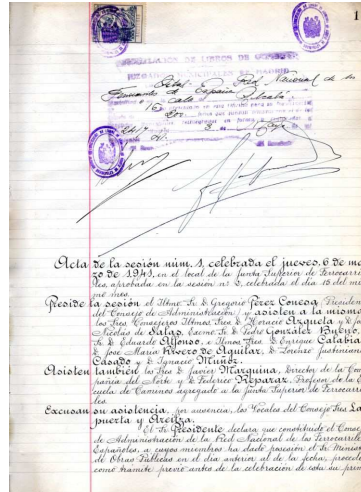 1
Red Nacional de los
Ferrocarriles de España
Acta de la sesión núm. 1, celebrada el jueves, 6 de mar
zo de 1941, en el local de la Junta Superior de Ferrocarri
les, aprobada en la sesión nº 3, celebrada el día 15 del mis
mo mes.
Preside la sesión el Iltmo. Sr. D. Gregorio Pérez Conesa, Presidente
del Consejo de Administración, y asisten a la misma
los Sres. Consejeros Iltmos. Sres. D. Horacio Azqueta y D.
Nicolás de Salas, Excmo. Sr. D. Pedro González Bueno,
Sr. D. Eduardo Alfonso, e Iltmos. Sres. D. Enrique Calabia
D. José María Rivero de Aguilar, D. Lorenzo
Casado y D. Ignacio Muñoz.
Asisten también los Sres. D. Javier Marquina, Director de la Com
pañía del Norte y D. Federico Reparaz, Profesor de la Es
cuela de Caminos agregado a la Junta Superior de Ferrocarri
les.
Excusan su asistencia, por ausencia, los Vocales del Consejo Sres. La
puerta y Areitza.
El Sr. Presidente declara que constituido el Consejo
de Administración de la Red Nacional de los Ferrocarriles
Españoles, a cuyos miembros ha dado posesión el Sr. Ministro
de Obras Públicas en el día anterior al de la fecha, procede
como trámite previo antes de la celebración de esta su prim